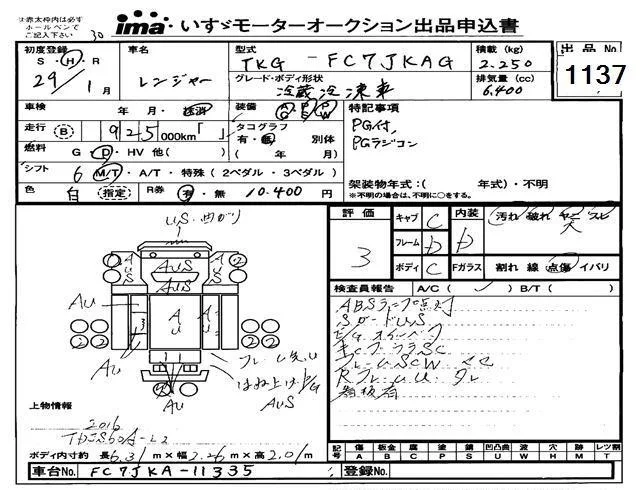 ※赤太枠内は必ず
ホールペンで
ご記入下さい
30
ima いすゞモーターオークション出品申込書
初度登録 S・H・R 29年 1月
車名 レンジャー
型式 TKG - FC7JKAG
グレード・ボディ形状 冷蔵冷凍車
積載 (kg) 2.250
排気量 (cc) 6.400
出品No 1137
車検 年・月・抹消
装備 A/G P/S P/W
走行 B 925 000km「 」
タコグラフ 有・無 別体 ( 年 月)
燃料 G・D・HV 他( )
シフト 6 M/T・A/T・特殊(2ペダル・3ペダル)
色 白 指定
R券 有・無 10.400円
特記事項
PG付
PGラジコン
架装物年式:( 年式)・不明
※不明の場合は、不明に○をする。
評価 3
キャブ C
フレーム D
ボディ C
内装 D 汚れ 破れ ヤニ スレ
大
Fガラス 割れ 線 点傷 イバリ
US・曲がり
A U S
AUS
AUS
AU
AU
AU
Au
Au
フレーム
はね上げPG
AUS
検査員報告 A/C( ) B/T( )
ABSランプ点灯
SガードUS
看板有
上物情報
2016
TDJS60A-L2
ボディ内寸約 長6.31m×幅2.26m×高2.01m
記号 傷 板金 腐 塗 錆 凹凸曲 穴 跡 レツ割
A B C P S U H M T
車台No. FC7JKA-11335
登録No.